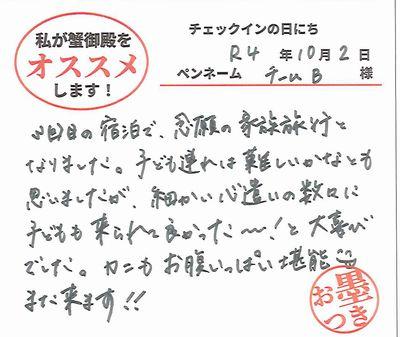 私が蟹御殿を
オススメ
します！
チェックインの日にち
R4 年 10月 2日
ペンネーム チームB 様
2回目の宿泊で、念願の家族旅行と
なりました。子ども連れは難しいかなとも
思いましたが、細かい心遣いの数々に
子どもも来られて良かった〜！と大喜び
でした。カニもお腹いっぱい堪能
また来ます!!
お墨つき